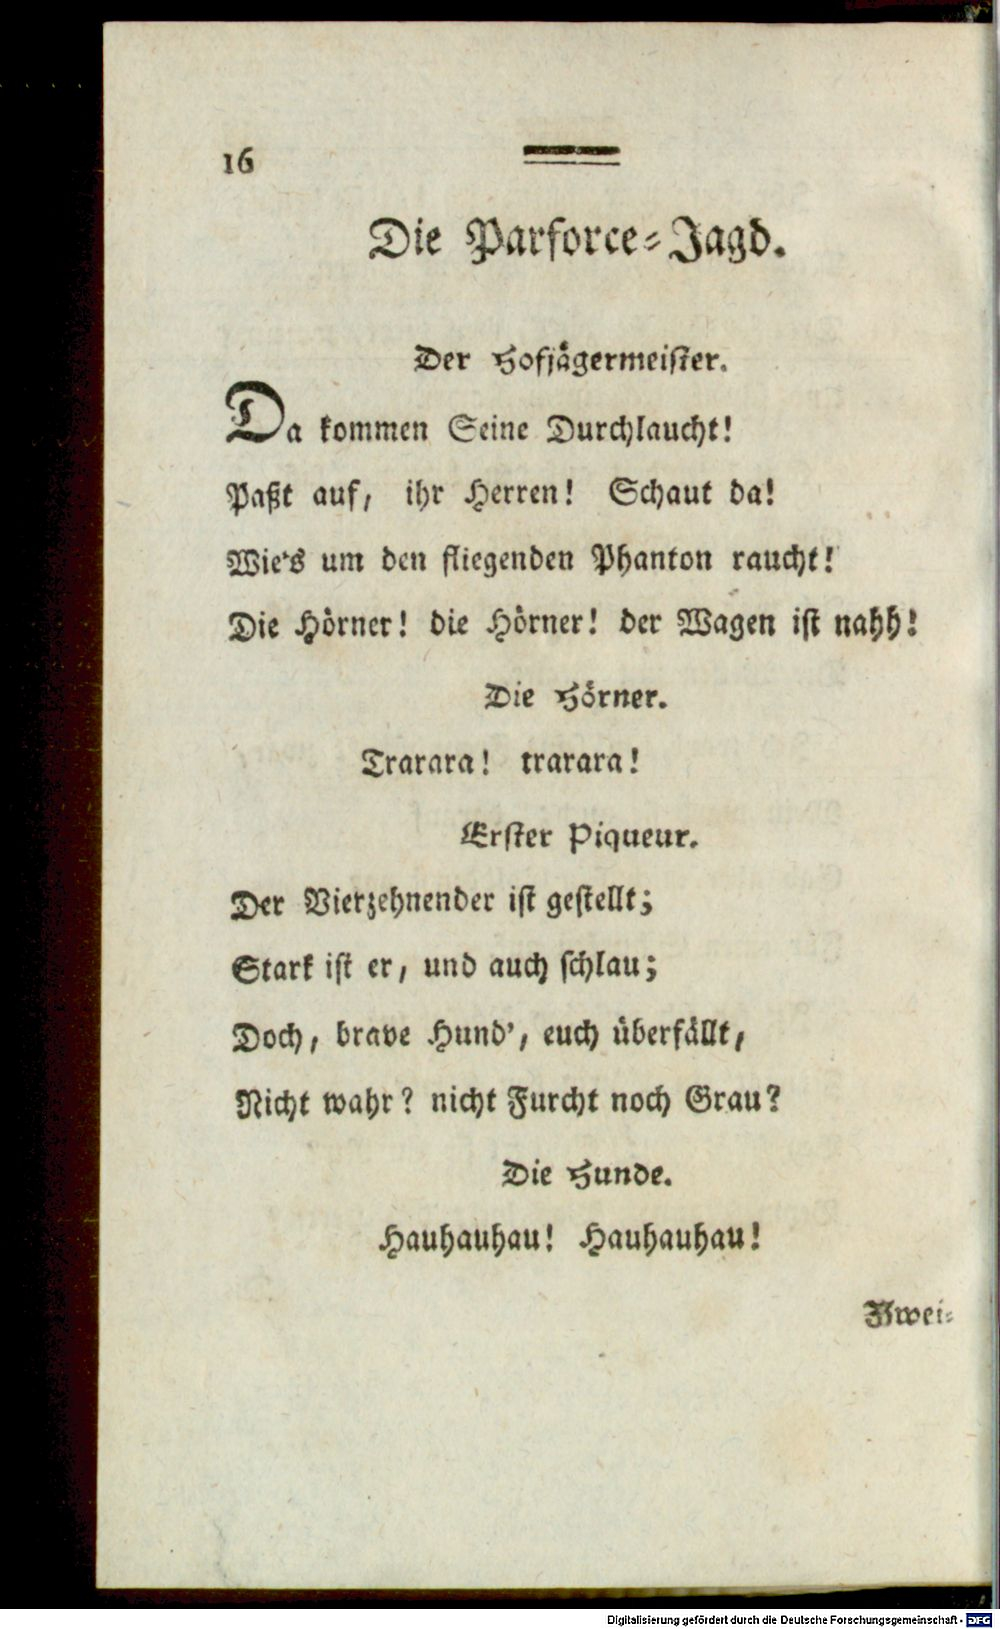 16
Die Parforce-Jagd.
Der Hofjägermeister.
Da kommen Seine Durchlaucht!
Paßt auf, ihr Herren! Schaut da!
Wie's um den fliegenden Phanton raucht!
Die Hörner! die Hörner! der Wagen ist nahh!
Die Hörner.
Trarara! trarara!
Erster Piqueur.
Der Vierzehnender ist gestellt;
Stark ist er, und auch schlau;
Doch, brave Hund', euch überfällt,
Nicht wahr? nicht Furcht noch Grau?
Die Hunde.
Hauhauhau! Hauhauhau!
Zwei-
Digitalisierung gefördert durch die Deutsche Forschungsgemeinschaft - DFG